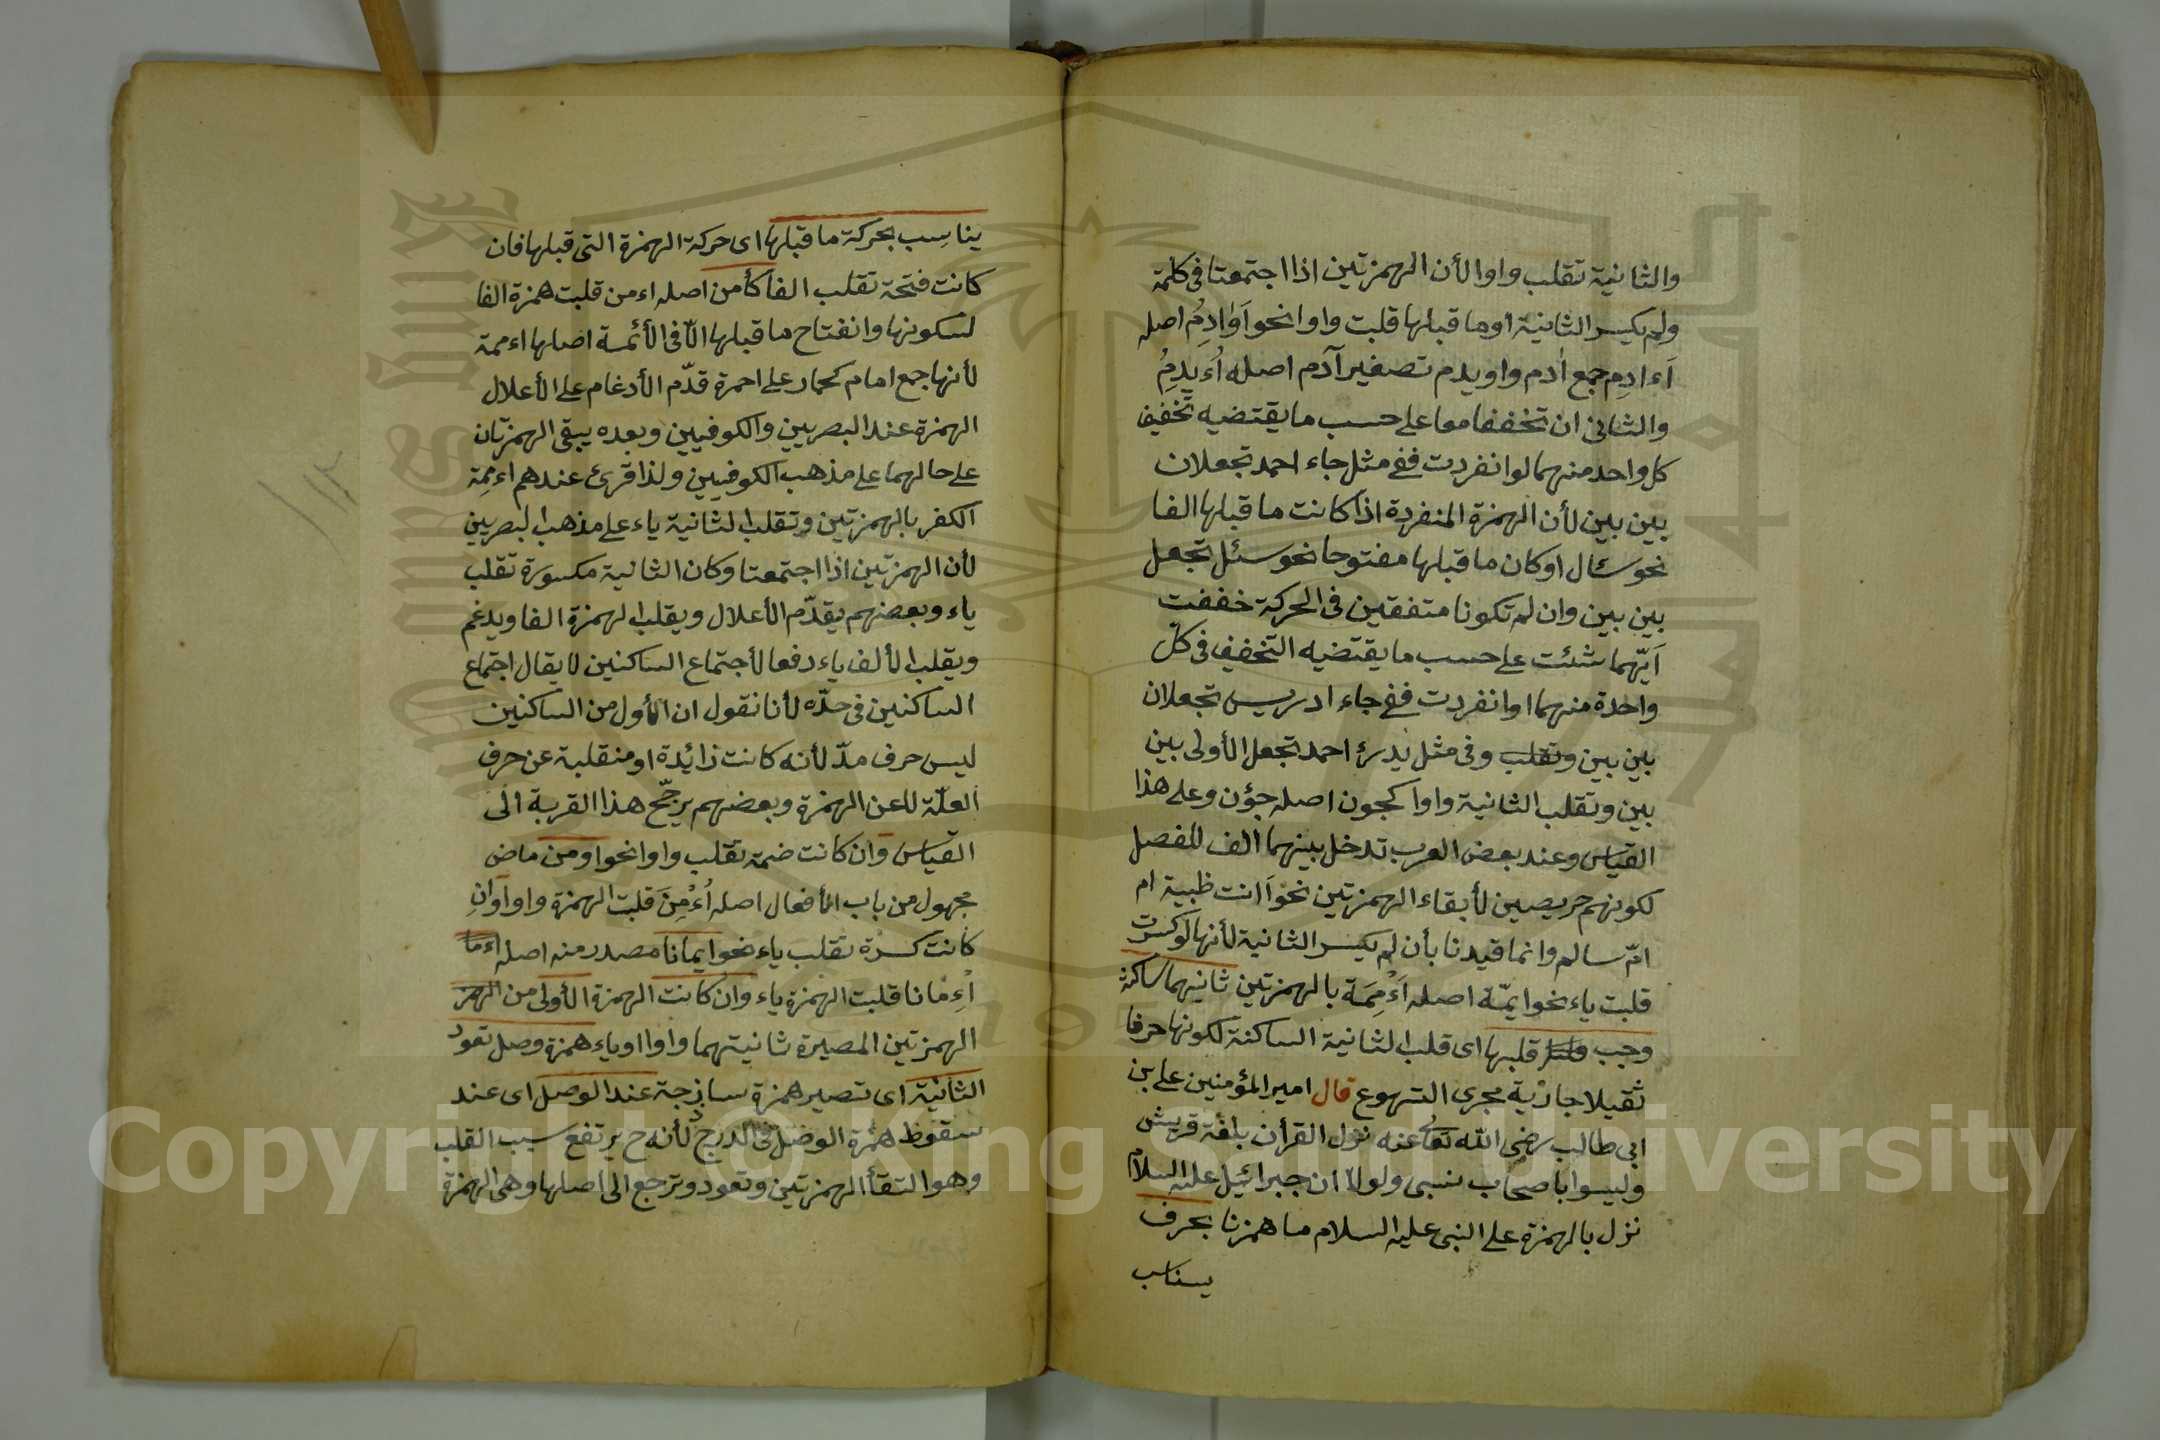 والثانية تقلب واوا لأن الهمزتين اذا اجتمعتا فى كلمة
ولم يكسر الثانية او ما قبلها قلبت واوا نحو اَوَادِمُ اصله
اَءادِم جمع اٰدم واويدم تصغير آدم اصله اُءَيدِمُ
والثانى ان تخففا معا على حسب ما يقتضيه تخفيف
كل واحد منهما لو انفردت ففى مثل جاء احمد تجعلان
بين بين لأن الهمزة المنفردة اذا كانت ما قبلها الفا
نحو سائل او كان ما قبلها مفتوحا نحو سئل تجعل
بين بين وان لم تكونا متفقين فى الحركة خففت
اَيّهما شئت على حسب ما يقتضيه التخفيف فى كل
واحدة منهما او انفردت ففى جاء ادريس تجعلان
بين بين وتقلب وفى مثل يدرئ احمد تجعل الأولى بين
بين وتقلب الثانية واوا كجون اصله جؤن وعلى هذا
القياس وعند بعض العرب تدخل بينهما الف للفصل
لكونهم حريصين لأبقاء الهمزتين نحو اَاانت ظبية ام
امّ سالم وانما قيدنا بأن لم يكسر الثانية لأنها لو كسرت
قلبت ياء نحو ايمّة اصله اَءْمِمَة بالهمزتين ثانيهما ساكنة
وجب قلبها اى قلب الثانية الساكنة لكونها حرفا
ثقيلا جارية مجرى التهوع قال امير المؤمنين على بن
ابى طالب رضى الله تعالى عنه نزل القرأن بلغة قريش
وليسوا باصحاب نبى ولولا ان جبرائيل عليه السلام
نزل بالهمزة على النبى عليه السلام ما همزنا بحرف
يناسب
يناسِب بحركة ما قبلها اى حركة الهمزة التى قبلها فان
كانت فتحة تقلب الفا كأمن اصله اءمن قلبت همزة الفا
لسكونها وانفتاح ما قبلها الّا فى الأئمة اصلها اءممة
لأنها جمع امام كحمار على احمرة قدّم الأدغام على الأعلال
الهمزة عند البصريين والكوفيين وبعده يبقى الهمزتان
على حالهما على مذهب الكوفيين ولذا قرئ عندهم اءمِة
الكفر بالهمزتين وتقلب الثانية ياء على مذهب البصريين
لأن الهمزتين اذا اجتمعتا وكان الثانية مكسورة تقلب
ياء وبعضهم يقدّم الأعلال ويقلب الهمزة الفا ويدغم
ويقلب الألف ياء دفعا لأجتماع الساكنين لا يقال اجتماع
الساكنين فى حدّه لأنا نقول ان الأول من الساكنين
ليس حرف مدّ لأنه كانت زائدة او منقلبة عن حرف
العلّة لا عن الهمزة وبعضهم يرجّح هذا القربة الى
القياس وان كانت ضمة تقلب واوا نحو اومن ماض
مجهول من باب الأفعال اصله اُءْمِنَ قلبت الهمزة واوا وانِ
كانت كسرة تقلب ياء نحو ايمانا مصدر منه اصله اءما
اْءِمانا قلبت الهمزة ياء وان كانت الهمزة الأولى من الهمز
الهمزتين المصيرة ثانيتهما واوا او ياء همزة وصل تعود
الثانية اى تصير همزة ساذجة عند الوصل اى عند
سقوط همزة الوصل فى الدرج لأنه ح يرتفع سبب القلب
وهو التقأ الهمزتين وتعود وترجع الى اصلها وهى الهمزة
١١٢
King Saud University
1957
Copyright © King Saud University